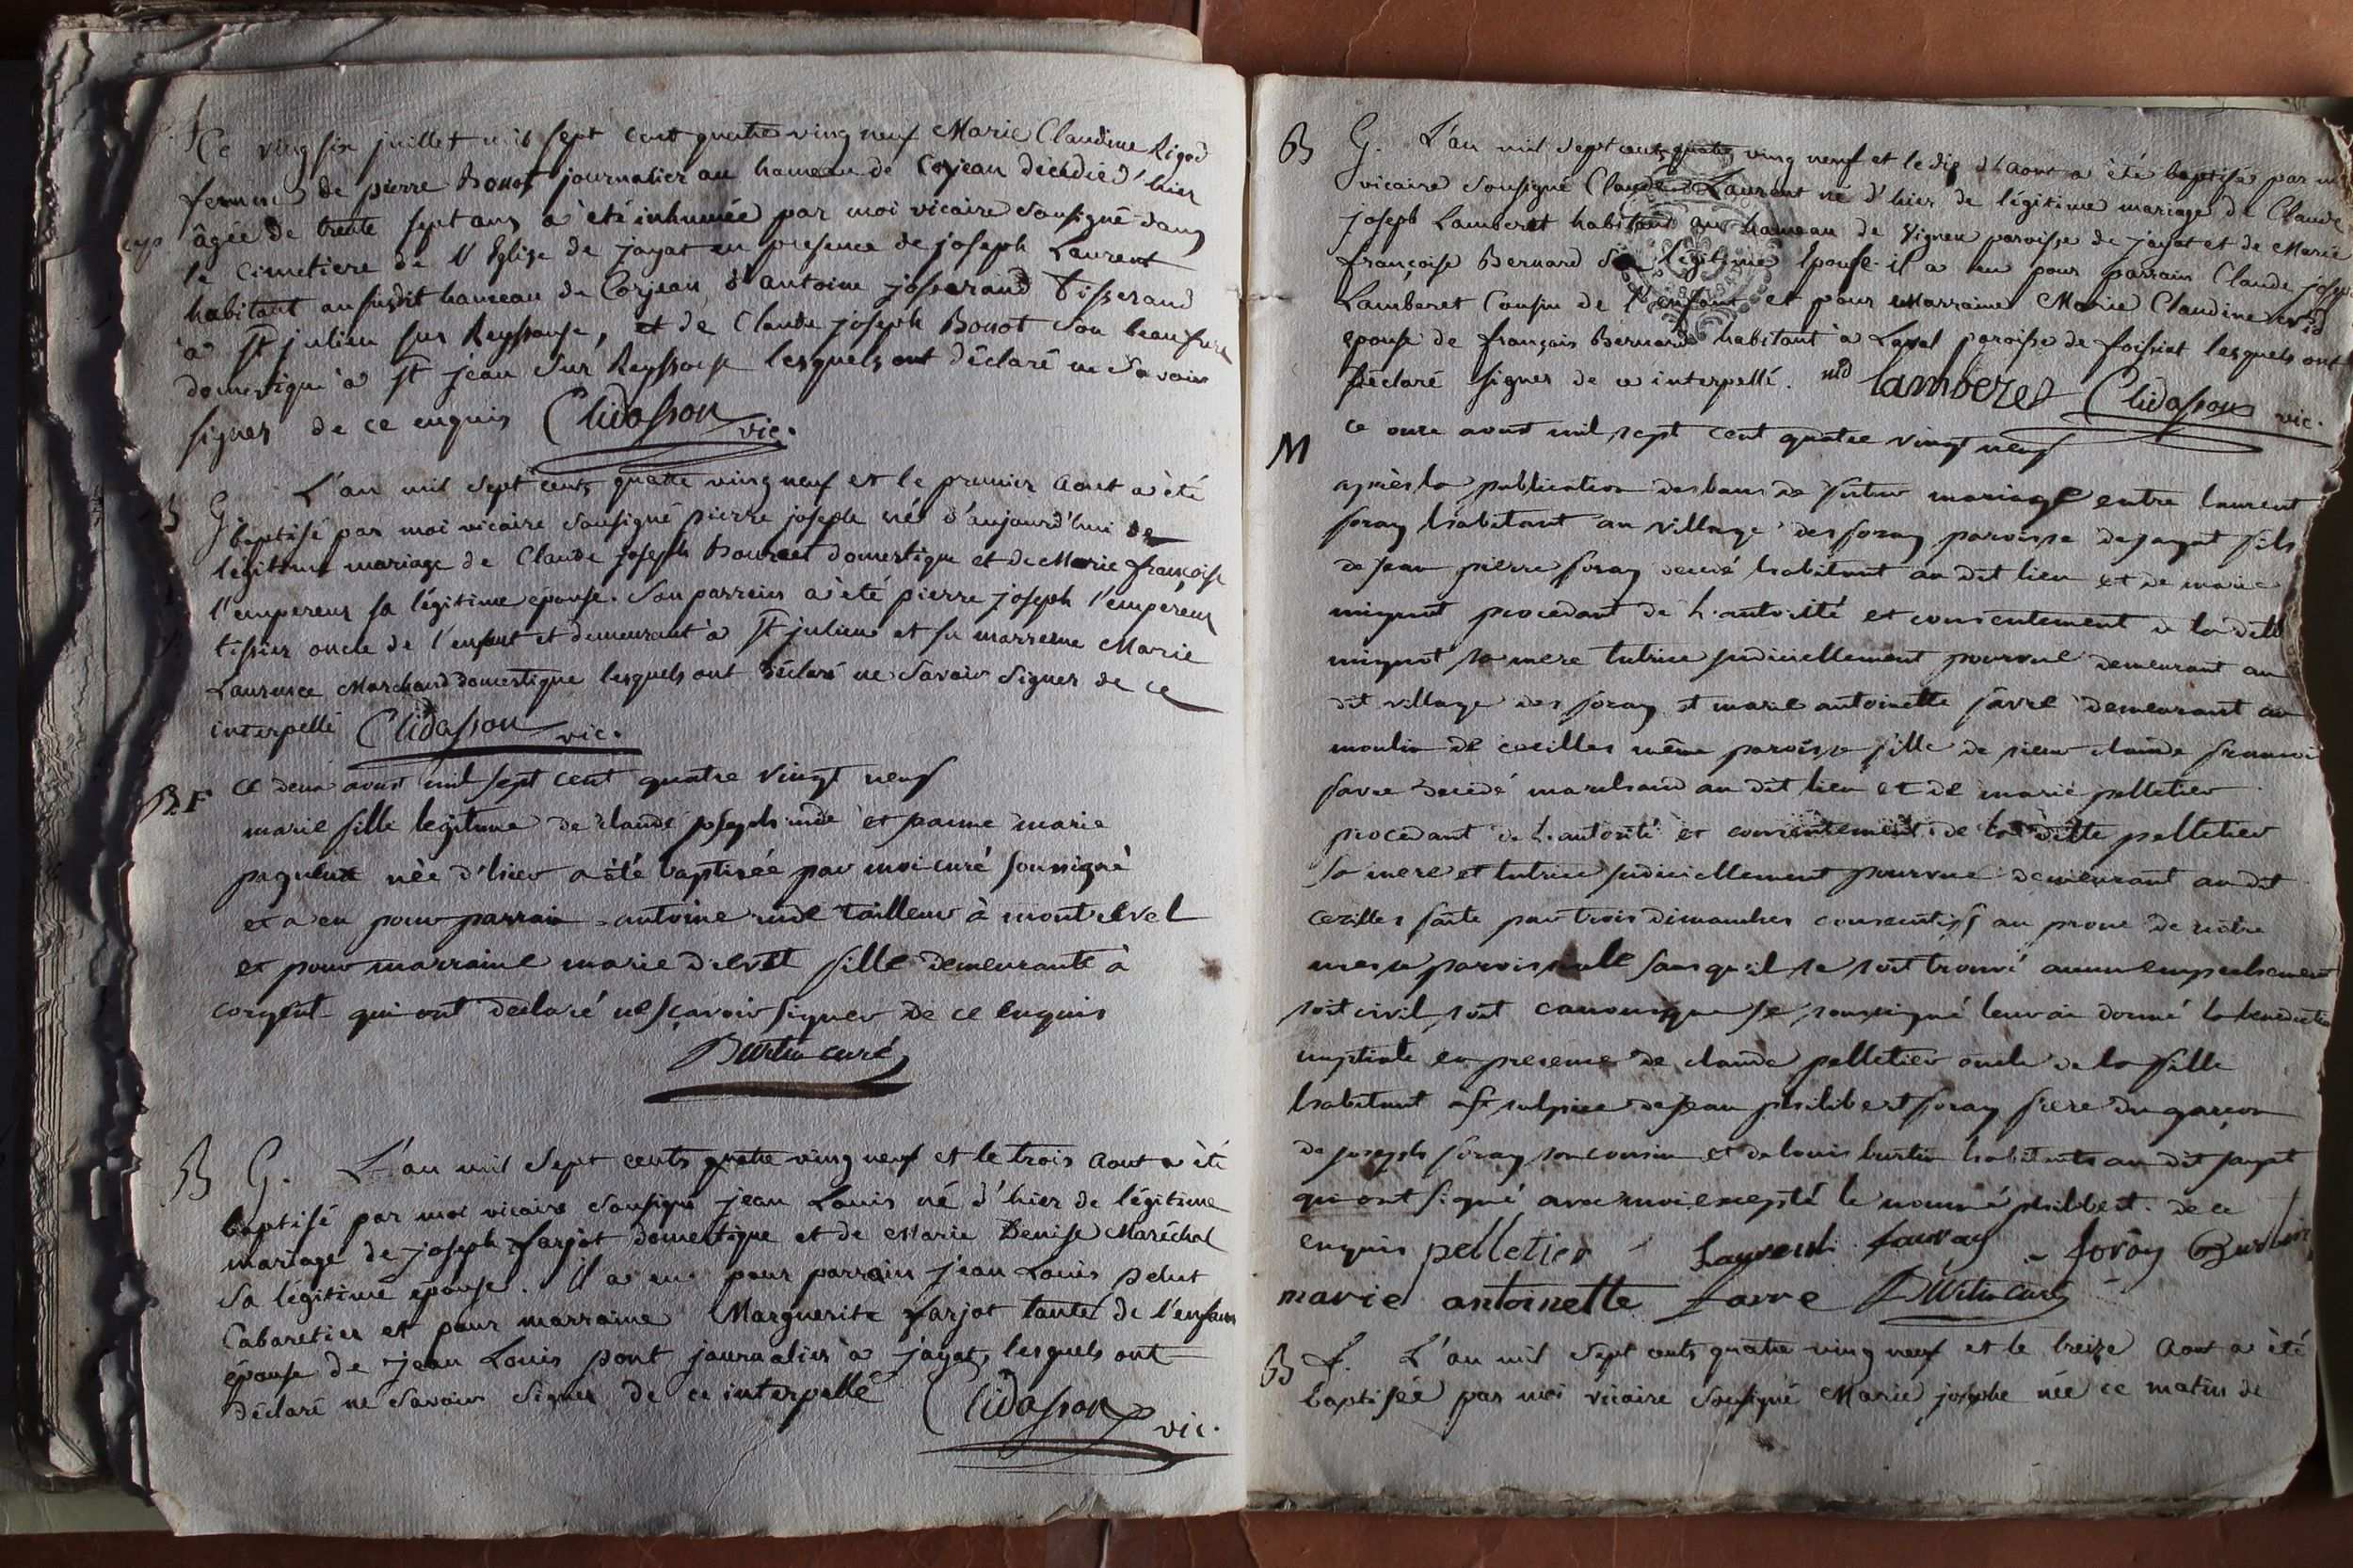 Ce ving six juillet mil sept cent quatre ving neuf Marie Claudine Rigod
femme de pierre Bonot journalier au hameau de Corjean décédée d'hier
âgée de trente sept ans a été inhumée par moi vicaire sousigné dans
le cimetiere de l'Eglise de jayat en presence de joseph Laurent
habitant au susdit hameau de Corjean d'antoine josserand tisserand
a St julien sur Reyssouse, et de Claude joseph Bonot son beaufrere
domestique a St jean sur Reyssouse lesquels ont déclaré ne savoir
signer de ce enquis Clidasson vic.
B G L'an mil sept cents quatre ving neuf et le premier Aout a été
baptisé par moi vicaire sousigné pierre joseph né d'aujourd'hui de
légitime mariage de Claude joseph Bourcet domestique et de Marie françoise
l'empereur sa légitime épouse. Son parrein a été pierre joseph l'empereur
tissier oncle de l'enfant et demeurant a St julien et sa marreine Marie
Laurence Marchand domestique lesquels ont déclaré ne savoir signer de ce
interpellé Clidasson vic.
B F ce deux aoust mil sept cent quatre vingt neuf
marie fille legitime de claude joseph et marie
née d'hier a été baptisée par moi curé soussigné
et a eu pour parrain antoine tailleur à montrevel
et pour marraine marie drevet fille demeurante à
corgent qui ont declaré ne sçavoir signer de ce enquis
Burtin curé
B G. L'an mil sept cents quatre ving neuf et le trois Aout a été
baptisé par moi vicaire sousigné jean Louis né d'hier de légitime
mariage de joseph farjot domestique et de Marie Denise Maréchal
sa légitime épouse. Il a eu pour parrain jean Louis pelut
Cabaretier et pour marraine Marguerite farjot tante de l'enfant
épouse de jean Louis pont journalier a jayat, lesquels ont
déclaré ne savoir signer de ce interpellé Clidasson vic.
B G. L'an mil sept cents quatre ving neuf et le dix d'Aout a été baptisé par
vicaire sousigné Claude Laurent né d'hier de légitime mariage de Claude
joseph Lamberet habitant au hameau de Vigneu paroisse de jayat et de Marie
françoise Bernard sa légitime épouse. il a eu pour parrain Claude joseph
Lamberet Cousin de l'enfant et pour marraine Marie Claudine
épouse de françois Bernard habitant à Laval paroisse de foissiat lesquels ont
déclaré signer de ce interpellé. lamberet Clidasson vic.
M ce onze aoust mil sept cent quatre vingt neuf
après la publication des bans de futur mariage entre laurent
foray habitant au village des foray paroisse de jayat fils
de jean pierre foray decedé habitant au dit lieu et de marie
mignot procedant de l'autorité et consentement de la ditte
mignot sa mere tutrice judiciellement pourvue demeurant au
dit village des foray et marie antoinette favre demeurant au
moulin de cezilles même paroisse fille de sieur claude françois
favre decedé marchand au dit lieu et de marie pelletier
procedant de l'autorité et consentement de la ditte pelletier
sa mere et tutrice judiciellement pourvue demeurant au dit
cezilles faite par trois dimanches consecutifs au prone de nôtre
messe paroissialle sans qu'il se soit trouvé aucun empechement
soit civil soit canonique je soussigné leur ai donné la benediction
nuptiale en presence de claude pelletier oncle de la fille
habitant a St sulpice de jean philibert foray frere du garçon
de joseph foray son cousin et de louis burtin habitants au dit jayat
qui ont signé avec moi excepté le nommé philibert. de ce
enquis pelletier Laurent fauray foray Burtin
marie antoinette favre Burtin curé
B f. L'an mil sept cents quatre ving neuf et le treize Aout a été
baptisée par moi vicaire sousigné Marie josephe née ce matin de